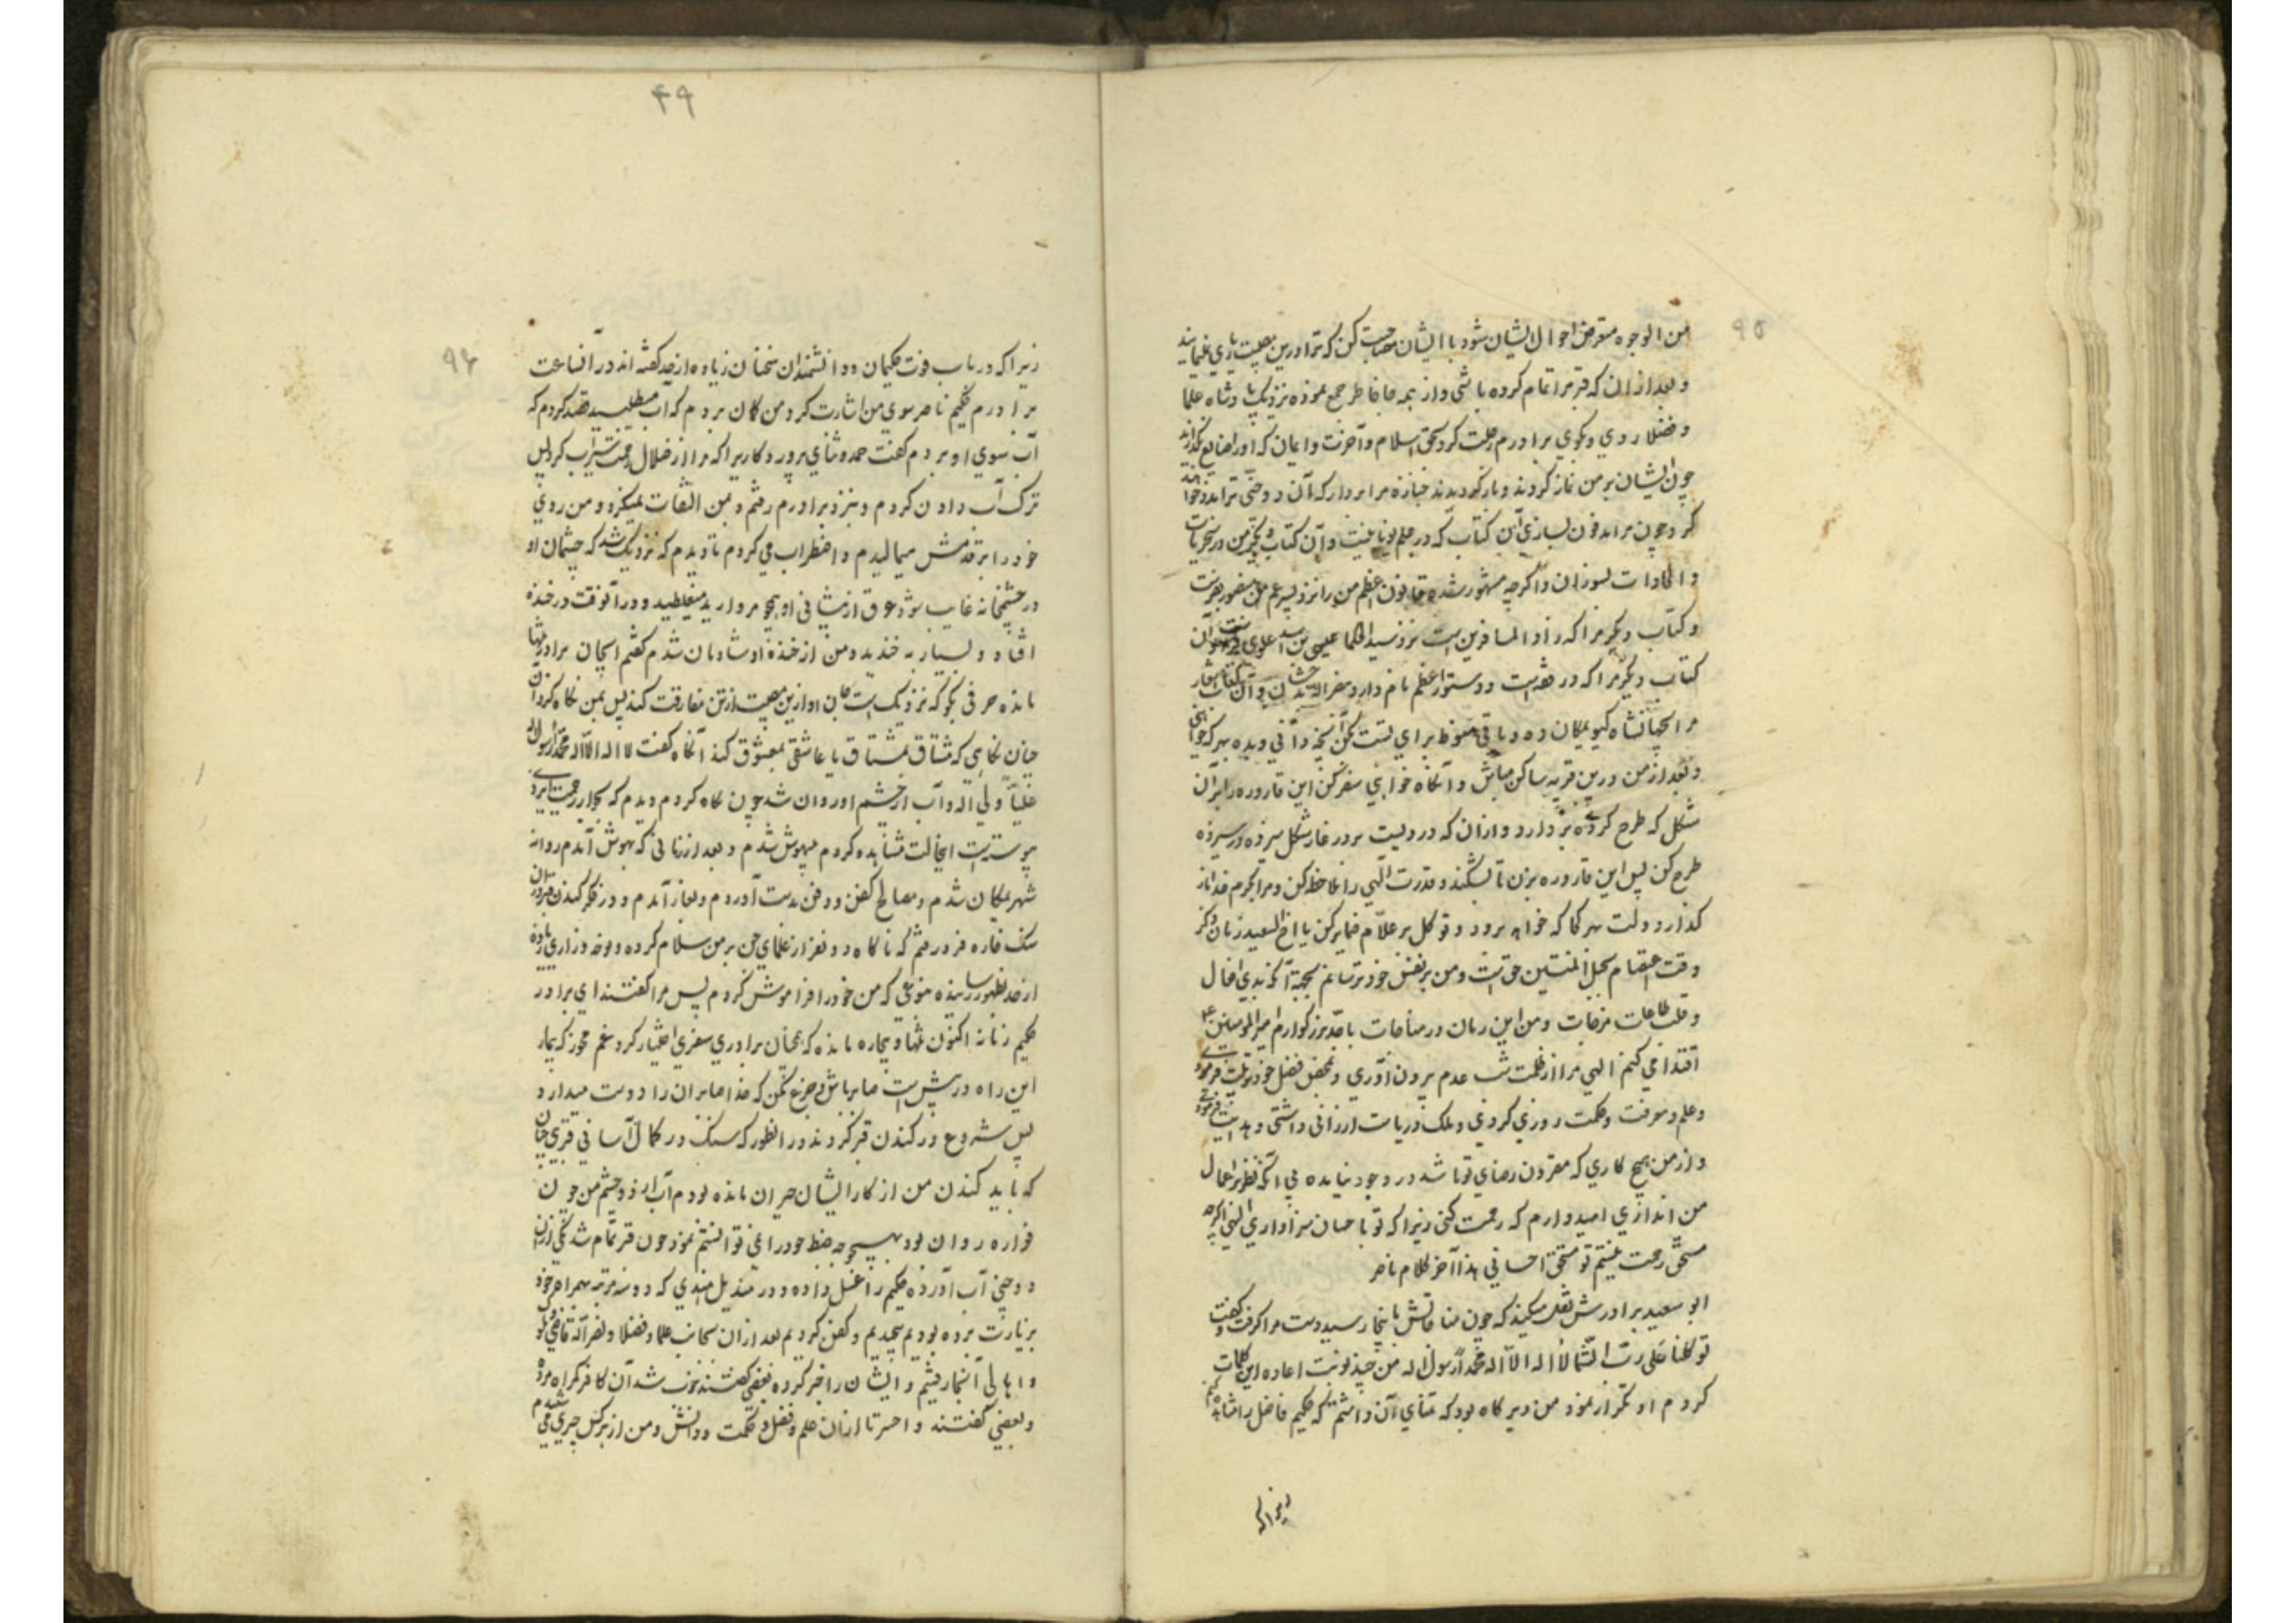 ۹۵
من الوجوه متعرض احوال ایشان شود با ایشان مصاحبت کن که ترا درین مصیبت یاری نمایند
و بعد از ان که قبر مرا تمام کرده باشی و از همه جا خاطر جمع نموده نزدیک پادشاه علما
و فضلا روی و بکوی برادرم رحلت کرد بحق اسلام و آخرت و ایمان که او را ضایع نکذارند
چون ایشان بر من نماز کردند و باز کردیدند جنازه مرا بردار که آن دو جنی ترا مدد خواهند
کرد چون مرا مدفون سازی آن کتاب که در علم یونانیست و آن کتاب دیکر من در سحریات
و اکرچه مشهور شده قانون اعظم من را نزد پسر عم من منصور بفرست
و کتاب دیکر مرا که زاد المسافرین است نزد سید الحکما عیسی بن اسد علوی
کتاب دیکر مرا که در فقه است و دستور اعظم نام دارد
مرا بجهانشاه کیو یمکان ده و باقی
و بعد از من درین قریه ساکن مباش و آنکاه خواهی سفر کن این قاروره را بر آن
شکل که طرح کرده دارد و از ان که در ویست بر در غار شکل
طرح کن پس این قاروره بزن تا بشکند و قدرت الهی را ملاحظه کن و مرا بکرم خدا باز
کذار و دولت هر کجا که خواهد برود و توکل بر علام ضمایر کن یا اخ السعید زمان ذکر
وقت اعتصام بحبل المتین حق است و من بر نفس خود ترسانم بجهة آنکه بدی افعال
و قلت طاعات مزجات و من این زمان در مناجات با جد بزرکوارم امیر المومنین ع
اقتدا می کنم الهی مرا از ظلمت شب عدم بیرون آوری و بمحض فضل خود تربیت فرمودی
و علم و معرفت و حکمت روزی کردی و ملک و ریاست ارزانی داشتی و هدایت فرمودی
و از من هیچ کاری که مقرون رضای تو باشد در وجود نیامده بی آنکه نظر بر اعمال
من اندازی امیدوارم که رحمت کنی زیرا که تو با حسان سزاواری الهی اکرچه
مستحق رحمت نیستم تو مستحق احسانی هذا آخر کلام ناصر
ابو سعید برادرش نقل میکند که چون مناجاتش باینجا رسید دست مرا کرفت و کفت
توکلنا علی رب السما لا اله الا الله محمد رسول الله من چند نوبت اعاده این کلمات
کردم او تکرار نمود من دیر کاه بود که تمنای آن داشتم که حکیم فاضل را
زیرا که
۴۹
۹۶
زیرا که در باب فوت حکیمان و دانشمندان سخنان زیاده از حد کفته اند در آنساعت
برادرم حکیم ناصر سوی من اشارت کرد من کمان بردم که آب میطلبید قصد کردم که
آب سوی او بردم کفت حمد و ثنای پروردکاریرا که مرا از زلال رحمت سیراب کرد پس
ترک آب دادن کردم و نزد برادرم رفتم و بمن التفات نمیکرد و من روی
خود را بر قدمش میمالیدم و اضطراب می کردم تا دیدم که نزدیک شد که چشمان او
در چشمخانه غایب شود عرق از پیشانی او همچو مروارید میغلطید و در آنوقت در خنده
افتاد و بسیار بخندید و من از خنده او شادمان شدم کفتم ایجان برادر تنها
مانده حرفی بکو که نزدیک است جان او ازین مصیبت از تن مفارقت کند پس بمن نکاه کرد آن
چنان نکاهی که مشتاق بمشتاق یا عاشق بمعشوق کند آنکاه کفت لا اله الا الله محمد رسول الله
علیا ولی الله و آب از چشم او روان شد چون نکاه کردم دیدم که بجوار رحمت ایزدی
پیوسته است اینحالت مشاهده کردم بیهوش شدم و بعد از زمانی که بهوش آمدم روانه
شهر یمکان شدم و مصالح کفن و دفن بدست آوردم و بغار آمدم و در فکر کندن قبر در آن
سنک خاره فرو رفتم که ناکاه دو نفر از علمای جن بر من سلام کرده و نوحه و زاری زیاده
از حد بظهور رسانیده بنوعی که من خود را فراموش کردم پس مرا کفتند ای برادر
حکیم زمانه اکنون تنها و بیچاره مانده که همچنان برادری سفری اختیار کرد و غم مخور که همه را
این راه در پیش است صابر باش و جزع مکن که خدا صابران را دوست میدارد
پس شروع در کندن قبر کردند در انطور که سنک در کمال آسانی قبری چنان
که باید کندن من از کار ایشان حیران مانده بودم آب از دو چشم من چون
فواره روان بود بهیچوجه ضبط خود را نمی توانستم نمود چون قبر تمام شد یکی از آن
دو جنی آب آورده حکیم را غسل داده و در مندیل هندی که دو سه مرتبه بهمراه خود
بزیارت برده بودیم پیچیدیم و کفن کردیم بعد از ان بجانب علما و فضلا و نصر الله قاضی
و اهالی آنجا رفتیم و ایشان را خبر کرده بعضی کفتند خوب شد آن کافر کمراه مرد
و بعضی کفتند وا حسرتا از ان علم و فضل و حکمت و دانش و من از هر کس چیزی می شنیدم